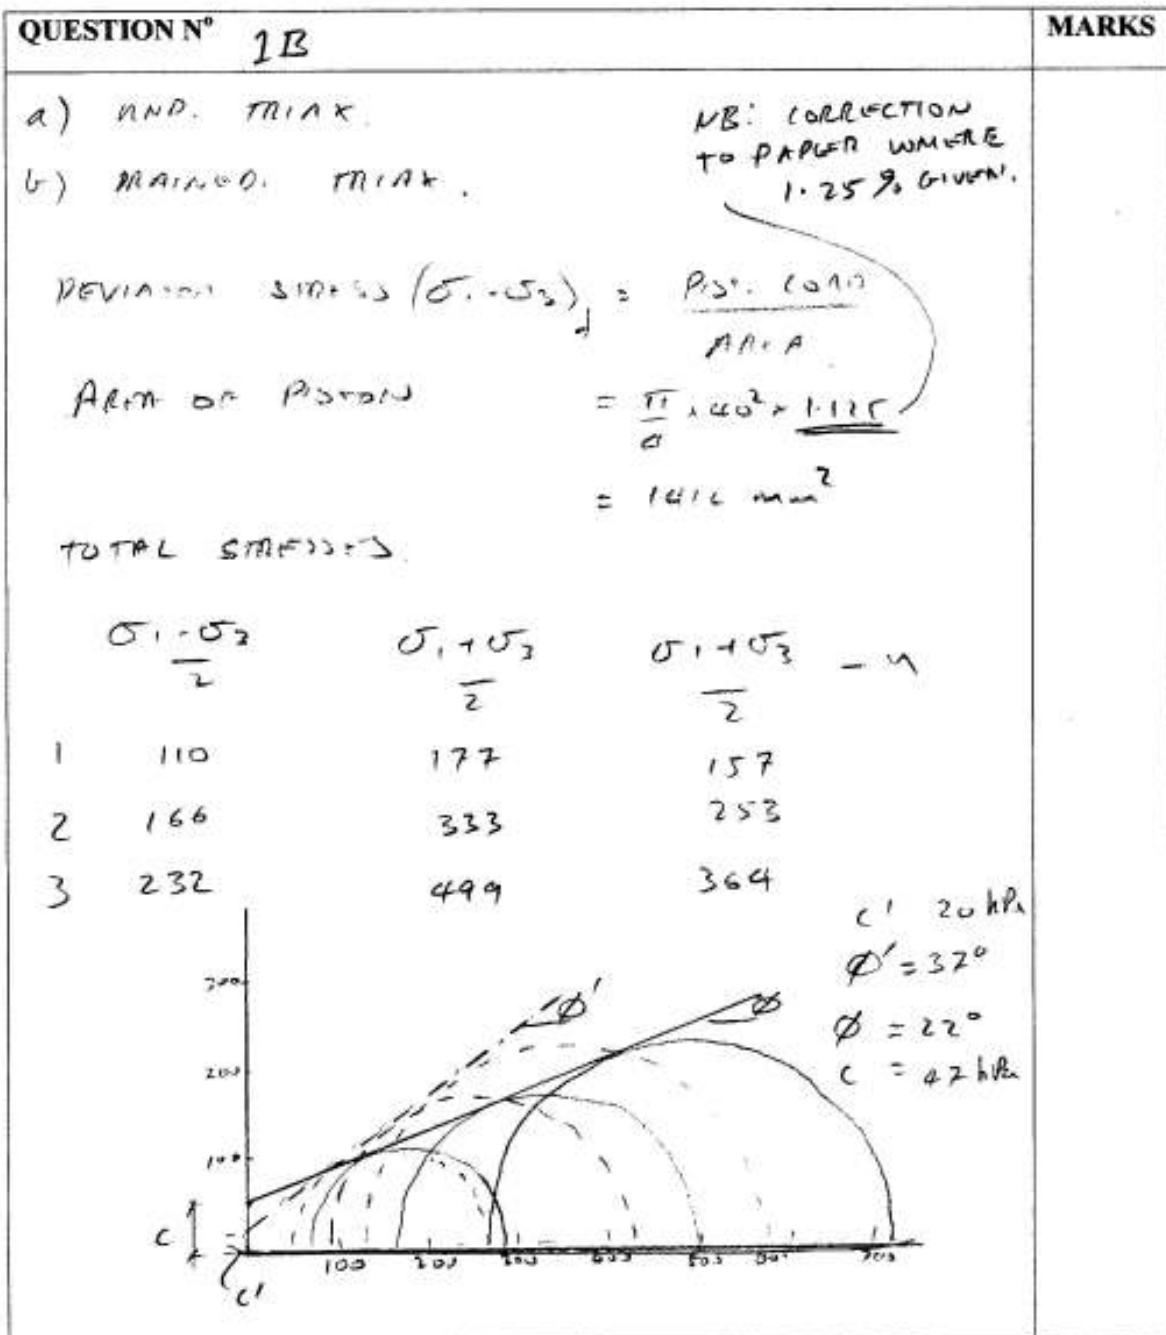 QUESTION Nº 1B
MARKS
a) UND. TRIAX.
b) DRAINED. TRIAX.
NB: CORRECTION
TO PAPER WHERE
1.25% GIVEN.
DEVIATOR STRESS (σ1-σ3)d = PIST. LOAD
AREA
AREA OF PISTON = π/4 × 40² × 1.125
= 1416 mm²
TOTAL STRESSES.
σ1-σ3/2 σ1+σ3/2 σ1+σ3/2 - u
1 110 177 157
2 166 333 253
3 232 499 364
c' 20 kPa
φ' = 37°
φ = 22°
c = 47 kPa
300
φ' φ
200
100
c
100 200 300
700
c'